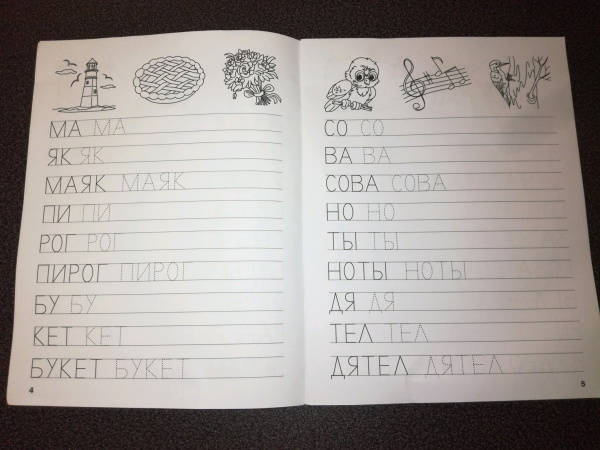 МА МА
ЯК ЯК
МАЯК МАЯК
ПИ ПИ
РОГ РОГ
ПИРОГ ПИРОГ
БУ БУ
КЕТ КЕТ
БУКЕТ БУКЕТ
4
СО СО
ВА ВА
СОВА СОВА
НО НО
ТЫ ТЫ
НОТЫ НОТЫ
ДЯ ДЯ
ТЕЛ ТЕЛ
ДЯТЕЛ ДЯТЕЛ
5